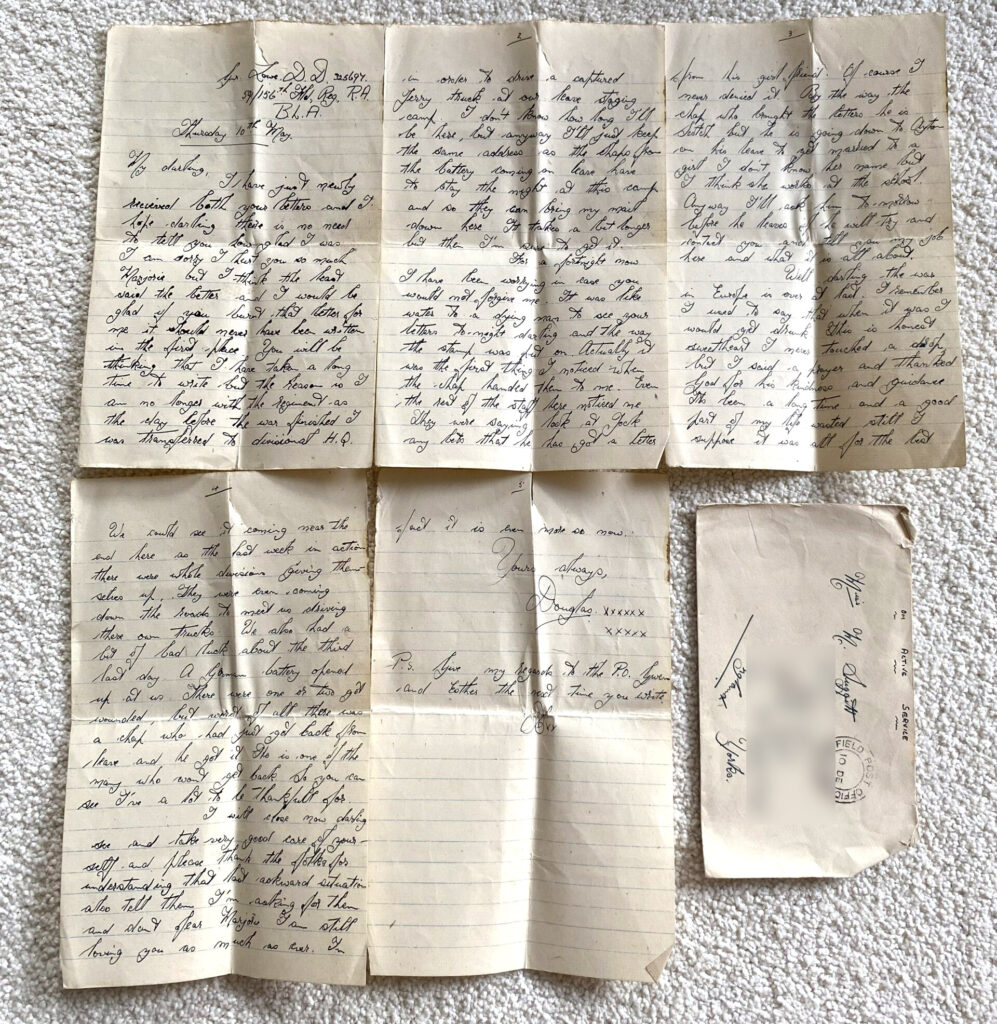 Gnr. Lowe. D. D. 325697.
59/156th Fld. Reg. R.A.
B.L.A.
Thursday 10th May.
My darling,
I have just newly
received both your letters and I
hope darling there is no need
to tell you how glad I was
I am sorry I hurt you so much
Marjorie but I think the least
said the better and I would be
glad if you burnt that letter for
me it should never have been written
in the first place. You will be
thinking that I have taken a long
time to write but the reason is I
am no longer with the regiment as
the day before the war finished I
was transferred to divisional H.Q.
2
in order to drive a captured
Jerry truck at our leave staging
camp. I don't know how long I'll
be here but anyway I'll just keep
the same address as the chaps from
the battery coming on leave have
to stay the night at this camp
and so they can bring my mail
down here. It takes a bit longer
but then I'm to get it.
For a fortnight now
I have been worrying in case you
would not forgive me. It was like
water to a dying man to see your
letters to-night darling and the way
the stamp was put on. Actually it
was the first thing I noticed when
the chap handed them to me. Even
the rest of the staff here noticed me
They were saying look at Jock
any bets that he has got a letter
3
from his girl friend. Of course I
never denied it. By the way the
chap who brought the letters he is
but he is going down to
on his leave to get married to a
girl I don't know her name but
I think she works at the school.
Anyway I'll ask him to-morrow
before he leaves if he will try and
contact you and tell you my job
here and what it is all about.
Well darling the war
in Europe is over at last. I remember
I used to say that when it was I
would get drunk. This is honest
sweetheart I never touched a drop
but I said a prayer and thanked
God for his kindness and guidance
Its been a long time and a good
part of my life wasted still I
suppose it was all for the best
4
We could see it coming near the
end here as the last week in action
there were whole divisions giving them-
selves up. They were even coming
down the roads to meet us driving
there own trucks. We also had a
bit of bad luck about the third
last day. A German battery opened
up at us. There were one or two got
wounded but worst of all there was
a chap who had just got back from
leave and he got it. He is one of the
many who wont get back. So you can
see I've a lot to be thankfull for
I will close now darling
see and take very good care of your-
self and please thank the folks for
understanding that last ackward situation
also tell them I'm asking for them
and don't fear Marjorie I am still
loving you as much as ever. In
5
fact it is even more so now.
Yours always,
Douglas. xxxxx
xxxxx
P.S. Give my regards to the P.O. Gwen
and Esther the next time you write
ON ACTIVE SERVICE
Miss M. Suggett
Yorks.
FIELD POST OFFICE
10 DE